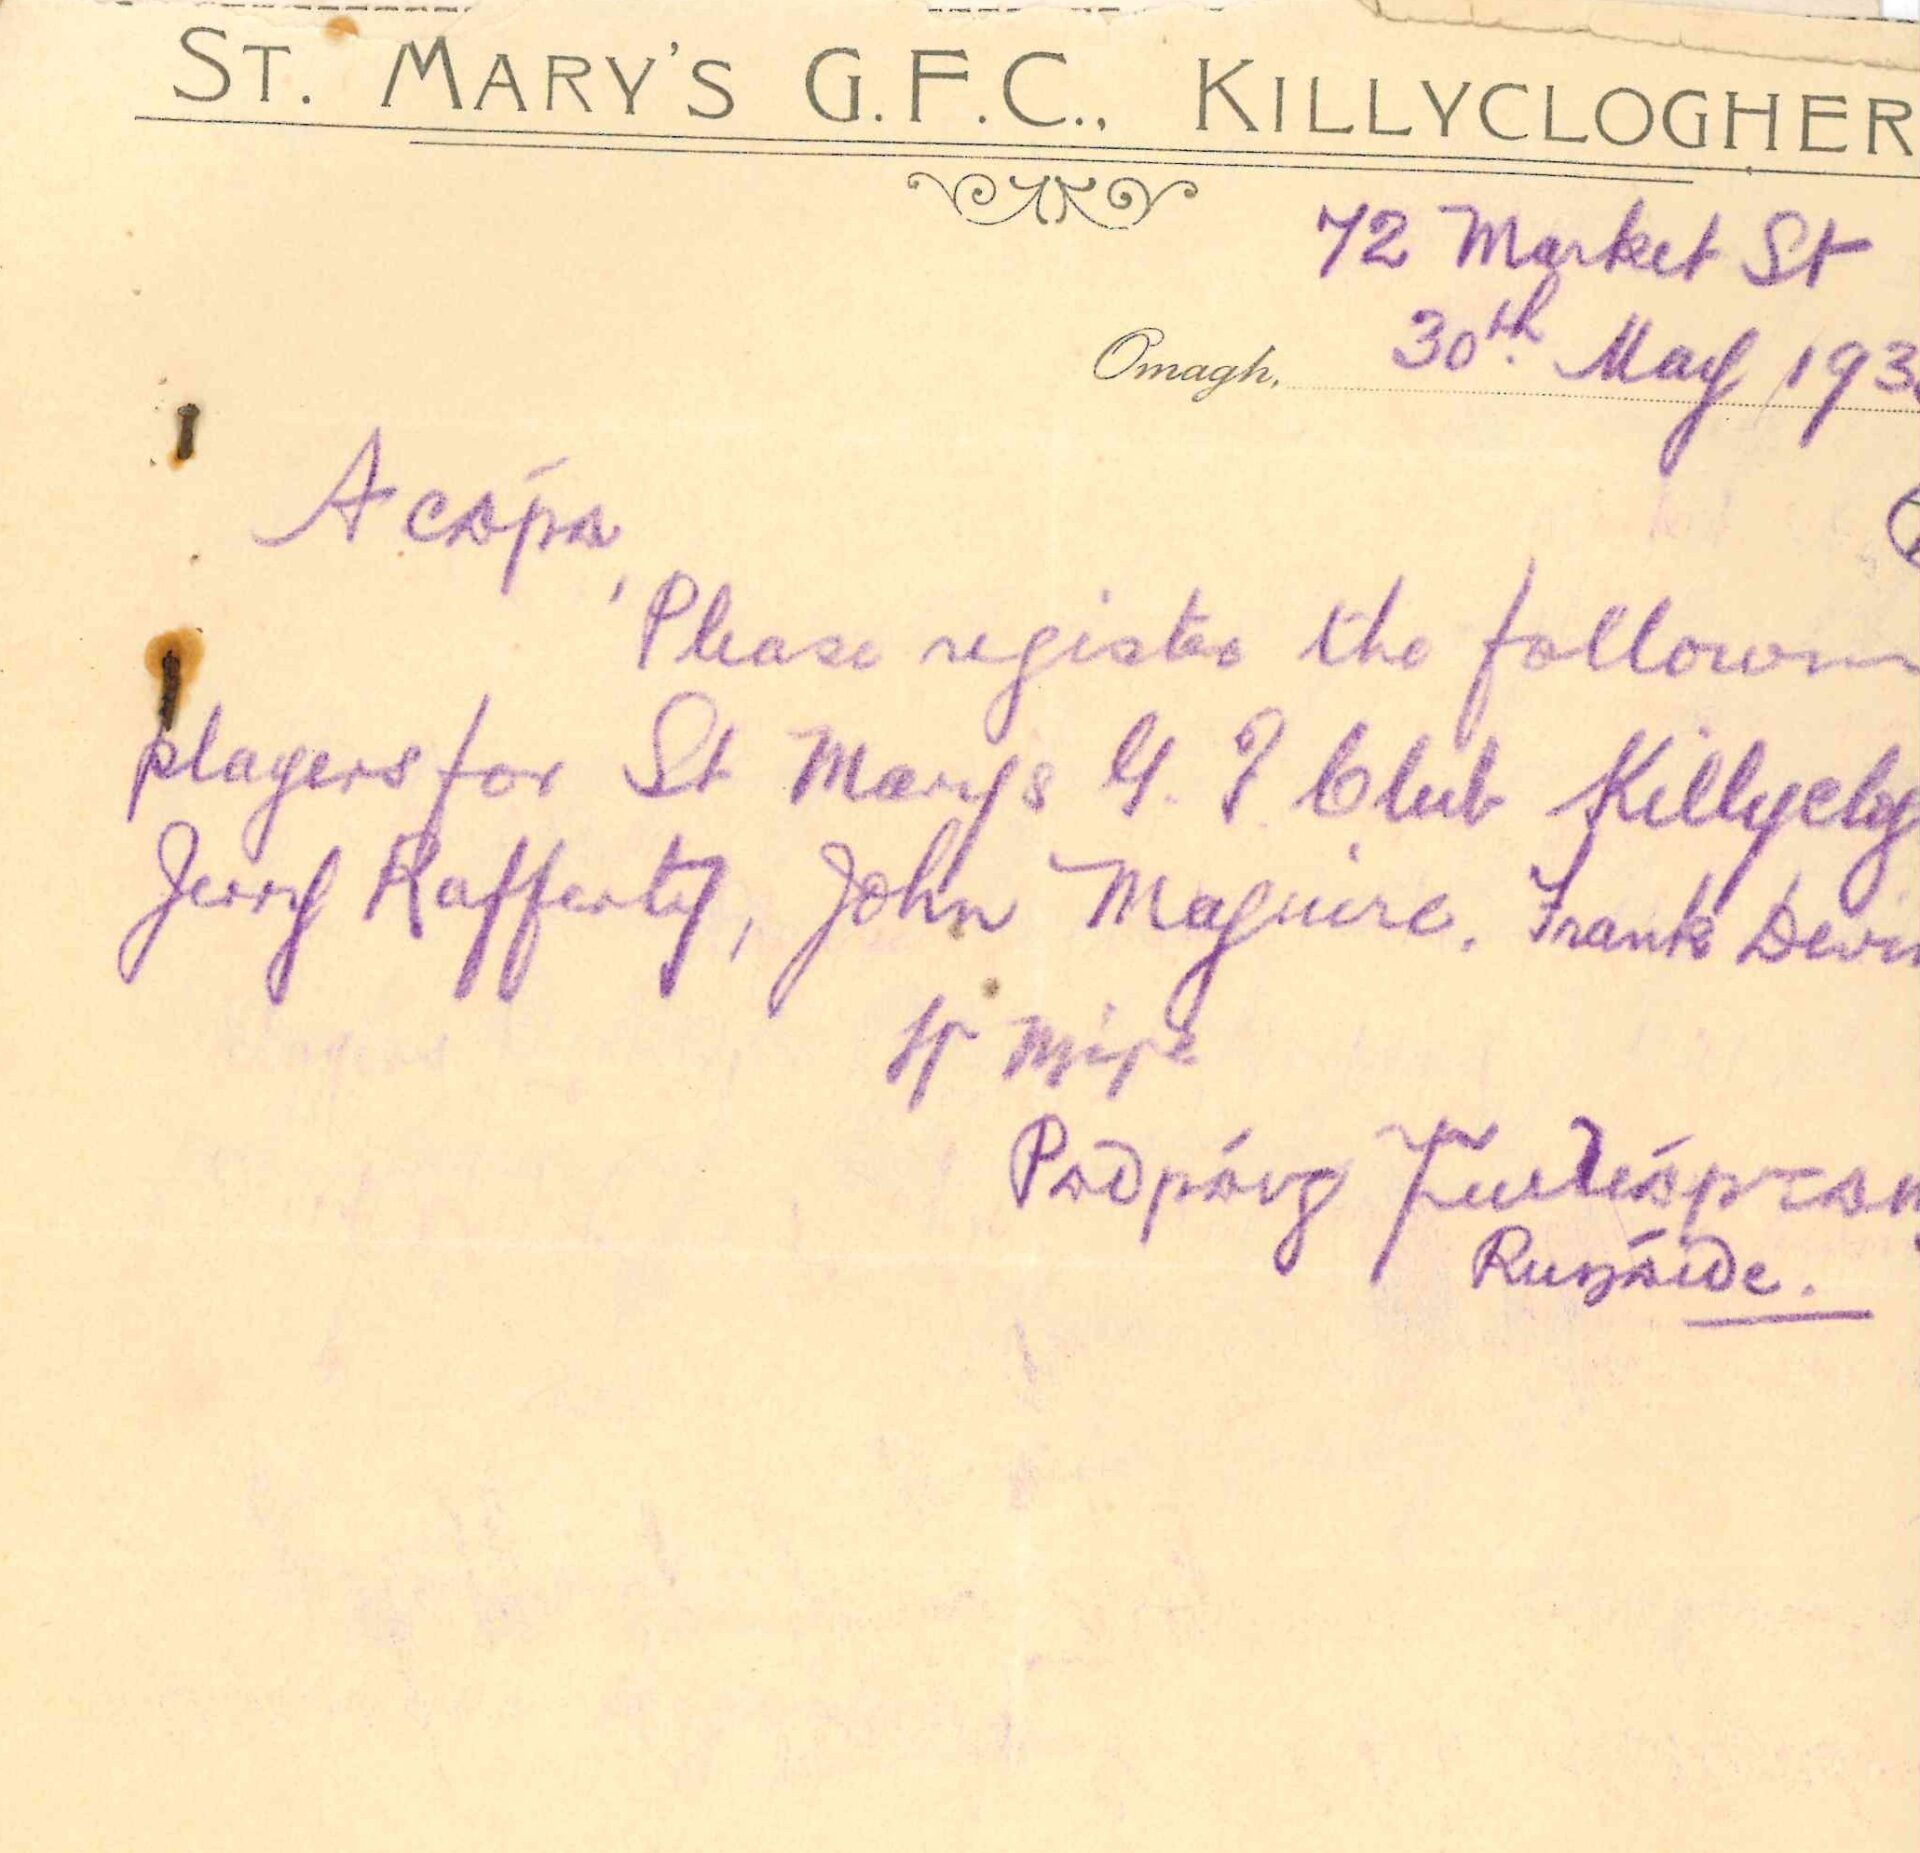 ST. MARY'S G.F.C., KILLYCLOGHER
72 Market St
Omagh, 30th May 193
A ċara,
Please register the followin
players for St Marys G. F Club Killyclog
Jerry Rafferty, John Maguire. Frank Devin
Is Mise
Pádraig
Rúnaide.